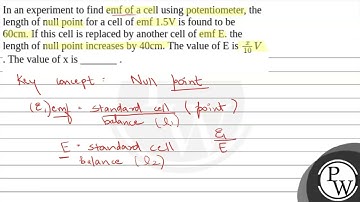 In an experiment to find emf of a cell using potentiometer, the
length of null point for a cell of emf 1.5V is found to be
60cm. If this cell is replaced by another cell of emf E. the
length of null point increases by 40cm. The value of E is x/10 V
. The value of x is _______ .
Key concept: Null point
(E₁) emf = standard cell (point)
balance (l₁)
E = standard cell
balance (l₂)
E₁/E
PW